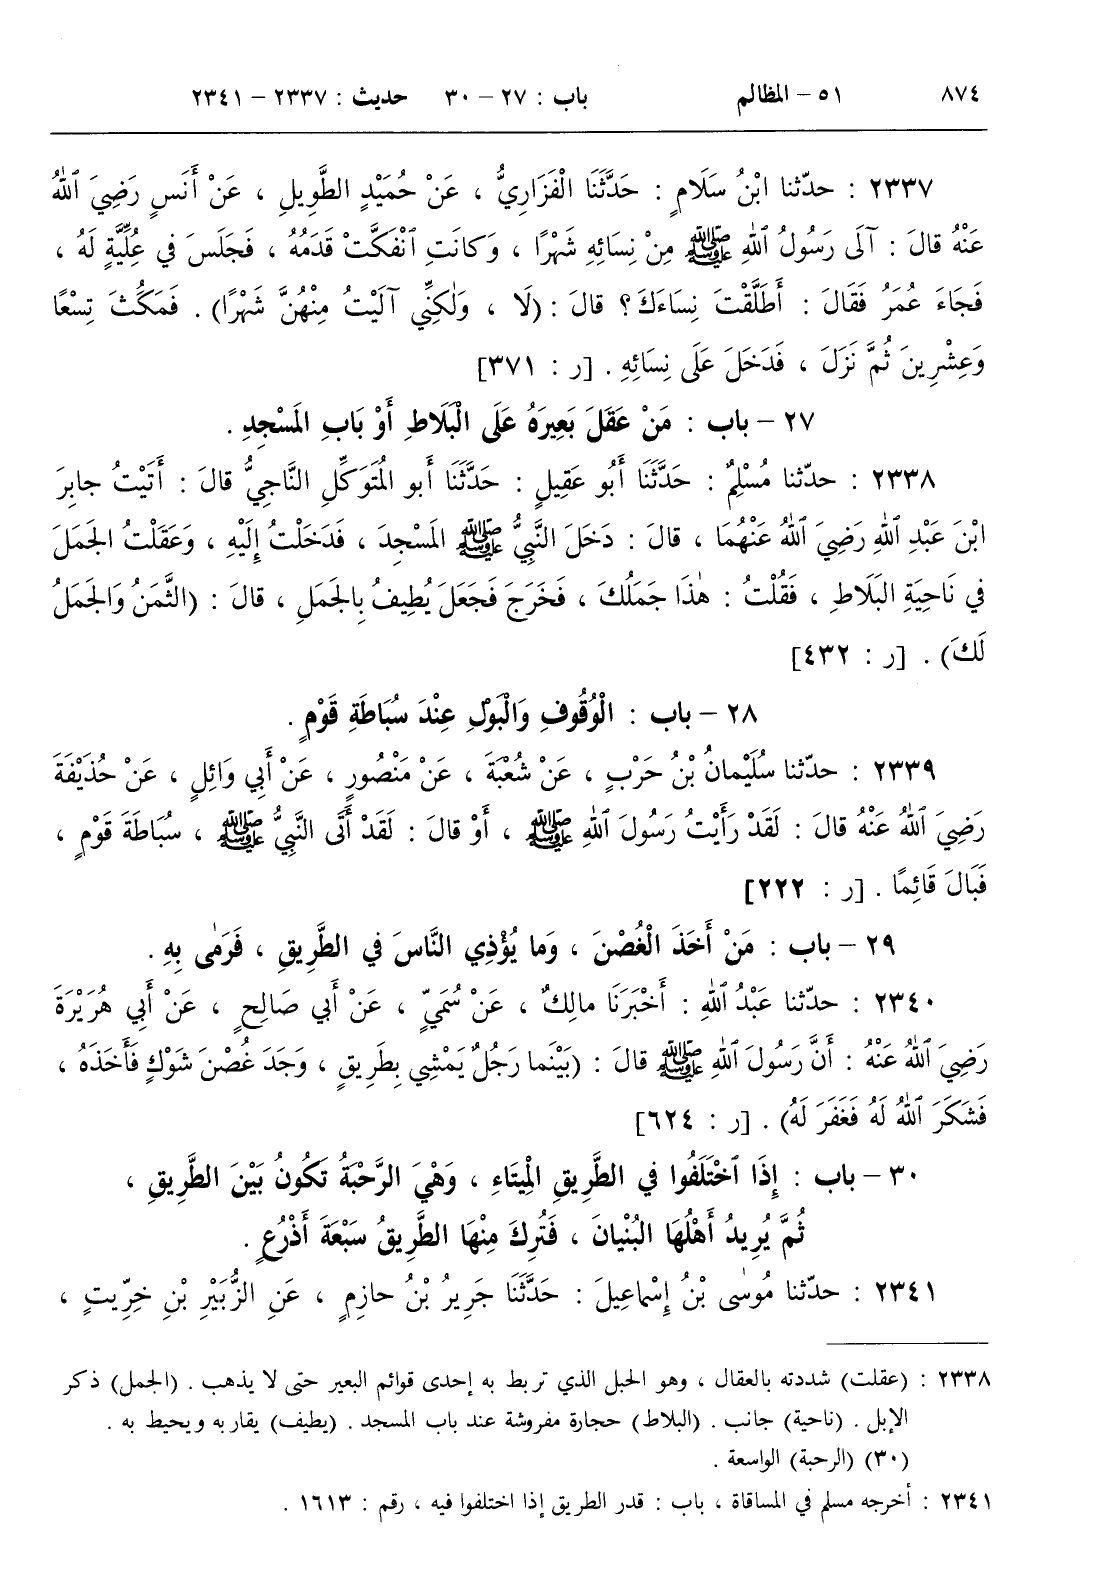 ٨٧٤ ٥١ - المظالم باب : ٢٧ - ٣٠ حديث : ٢٣٣٧ - ٢٣٤١
٢٣٣٧ : حدّثنا ابْنُ سَلَامٍ : حَدَّثَنَا الْفَزَارِيُّ ، عَنْ حُمَيْدٍ الطَّوِيلِ ، عَنْ أَنَسٍ رَضِيَ ٱللهُ
عَنْهُ قالَ : آلَى رَسُولُ ٱللهِ ﷺ مِنْ نِسَائِهِ شَهْرًا ، وَكانَتِ ٱنْفَكَّتْ قَدَمُهُ ، فَجَلَسَ في عُلِّيَّةٍ لَهُ ،
فَجَاءَ عُمَرُ فَقَالَ : أَطَلَّقْتَ نِسَاءَكَ ؟ قالَ : (لَا ، وَلٰكِنِّي آلَيْتُ مِنْهُنَّ شَهْرًا) . فَمَكَثَ تِسْعًا
وَعِشْرِينَ ثُمَّ نَزَلَ ، فَدَخَلَ عَلَى نِسَائِهِ . [ر : ٣٧١]
٢٧ - باب : مَنْ عَقَلَ بَعِيرَهُ عَلَى الْبَلَاطِ أَوْ بَابِ المَسْجِدِ .
٢٣٣٨ : حدّثنا مُسْلِمٌ : حَدَّثَنَا أَبُو عَقِيلٍ : حَدَّثَنَا أَبو المُتَوَكِّلِ النَّاجِيُّ قالَ : أَتَيْتُ جابِرَ
ابْنَ عَبْدِ ٱللهِ رَضِيَ ٱللهُ عَنْهُمَا ، قالَ : دَخَلَ النَّبِيُّ ﷺ المَسْجِدَ ، فَدَخَلْتُ إِلَيْهِ ، وَعَقَلْتُ الجَمَلَ
في نَاحِيَةِ البَلَاطِ ، فَقُلْتُ : هٰذَا جَمَلُكَ ، فَخَرَجَ فَجَعَلَ يُطِيفُ بِالجَمَلِ ، قالَ : (الثَّمَنُ وَالجَمَلُ
لَكَ) . [ر : ٤٣٢]
٢٨ - باب : الْوُقُوفِ وَالْبَوْلِ عِنْدَ سُبَاطَةِ قَوْمٍ .
٢٣٣٩ : حدّثنا سُلَيْمانُ بْنُ حَرْبٍ ، عَنْ شُعْبَةَ ، عَنْ مَنْصُورٍ ، عَنْ أَبِي وَائِلٍ ، عَنْ حُذَيْفَةَ
رَضِيَ ٱللهُ عَنْهُ قالَ : لَقَدْ رَأَيْتُ رَسُولَ ٱللهِ ﷺ ، أَوْ قالَ : لَقَدْ أَتَى النَّبِيُّ ﷺ ، سُبَاطَةَ قَوْمٍ ،
فَبَالَ قَائِمًا . [ر : ٢٢٢]
٢٩ - باب : مَنْ أَخَذَ الْغُصْنَ ، وَما يُؤْذِي النَّاسَ في الطَّرِيقِ ، فَرَمٰى بِهِ .
٢٣٤٠ : حدّثنا عَبْدُ ٱللهِ : أَخْبَرَنَا مالِكٌ ، عَنْ سُمَيٍّ ، عَنْ أَبي صَالِحٍ ، عَنْ أَبِي هُرَيْرَةَ
رَضِيَ ٱللهُ عَنْهُ : أَنَّ رَسُولَ ٱللهِ ﷺ قالَ : (بَيْنَما رَجُلٌ يَمْشِي بِطَرِيقٍ ، وَجَدَ غُصْنَ شَوْكٍ فَأَخَذَهُ ،
فَشَكَرَ ٱللهُ لَهُ فَغَفَرَ لَهُ) . [ر : ٦٢٤]
٣٠ - باب : إِذَا ٱخْتَلَفُوا في الطَّرِيقِ الْمِيتَاءِ ، وَهْيَ الرَّحْبَةُ تَكُونُ بَيْنَ الطَّرِيقِ ،
ثُمَّ يُرِيدُ أَهْلُهَا الْبُنْيانَ ، فَتُرِكَ مِنْهَا الطَّرِيقُ سَبْعَةَ أَذْرُعٍ .
٢٣٤١ : حدّثنا مُوسٰى بْنُ إِسْماعِيلَ : حَدَّثَنَا جَرِيرُ بْنُ حازِمٍ ، عَنِ الزُّبَيْرِ بْنِ خِرِّيتٍ ،
٢٣٣٨ : (عقلت) شددته بالعقال ، وهو الحبل الذي تربط به إحدى قوائم البعير حتى لا يذهب . (الجمل) ذكر
الإبل . (ناحية) جانب . (البلاط) حجارة مفروشة عند باب المسجد . (يطيف) يقاربه ويحيط به .
(٣٠) (الرحبة) الواسعة .
٢٣٤١ : أخرجه مسلم في المساقاة ، باب : قدر الطريق إذا اختلفوا فيه ، رقم : ١٦١٣ .